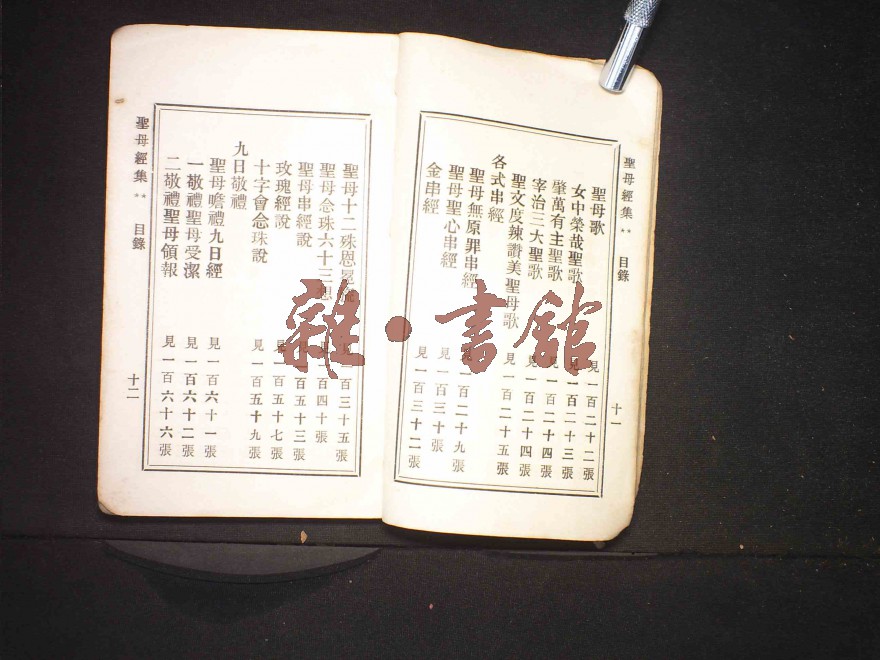 聖母經集 目錄 十一
聖母歌 見一百二十二張
女中榮哉聖歌 見一百二十三張
肇萬有主聖歌 見一百二十四張
宰治三大聖歌 見一百二十四張
聖文度辣讚美聖母歌 見一百二十五張
各式串經
聖母無原罪串經 見一百二十九張
聖母聖心串經 見一百三十張
金串經 見一百三十二張
聖母經集 目錄 十二
聖母十二殊恩星 見一百三十五張
聖母念珠六十三想 見一百四十張
聖母串經說 見一百五十三張
玫瑰經說 見一百五十七張
十字會念珠說 見一百五十九張
九日敬禮
聖母瞻禮九日經 見一百六十一張
一敬禮聖母受潔 見一百六十二張
二敬禮聖母領報 見一百六十六張
雜·書館